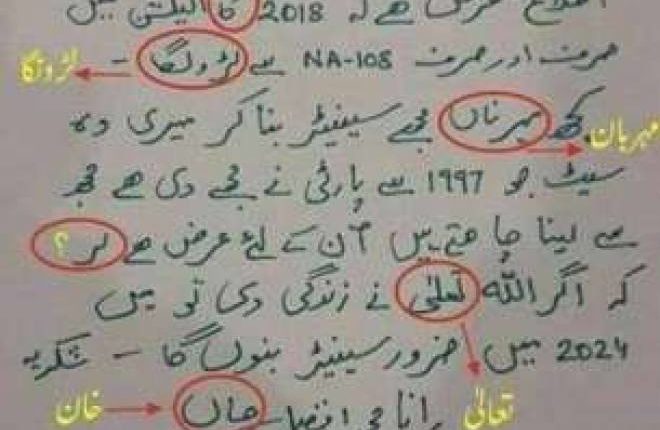 اطلاع عرض ہے کہ 2018 کا الیکشن میں
صرف اور صرف NA-108 سے لڑولگا -
لڑونگا
کچھ مہرناں مجھے سینیٹر بنا کر میری وہ
مہربان
سیٹ جو 1997 سے پارٹی نے مجھے دی ھے مجھ
سے لینا چاھتے ہیں اُن کے لئے عرض ھے لر ؟
کہ اگر اللہ تعلٰی نے زندگی دی تو میں
2024 میں ضرور سینیٹر بنوں گا - شکریہ
تعالیٰ
رانا محمد افضل حاں
خان